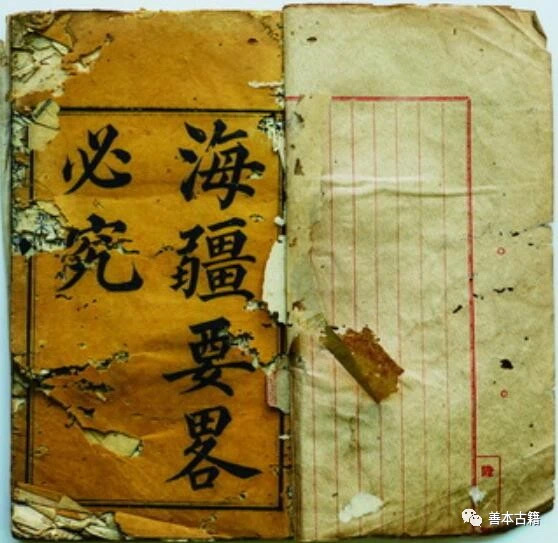 海疆要畧
必究
善本古籍